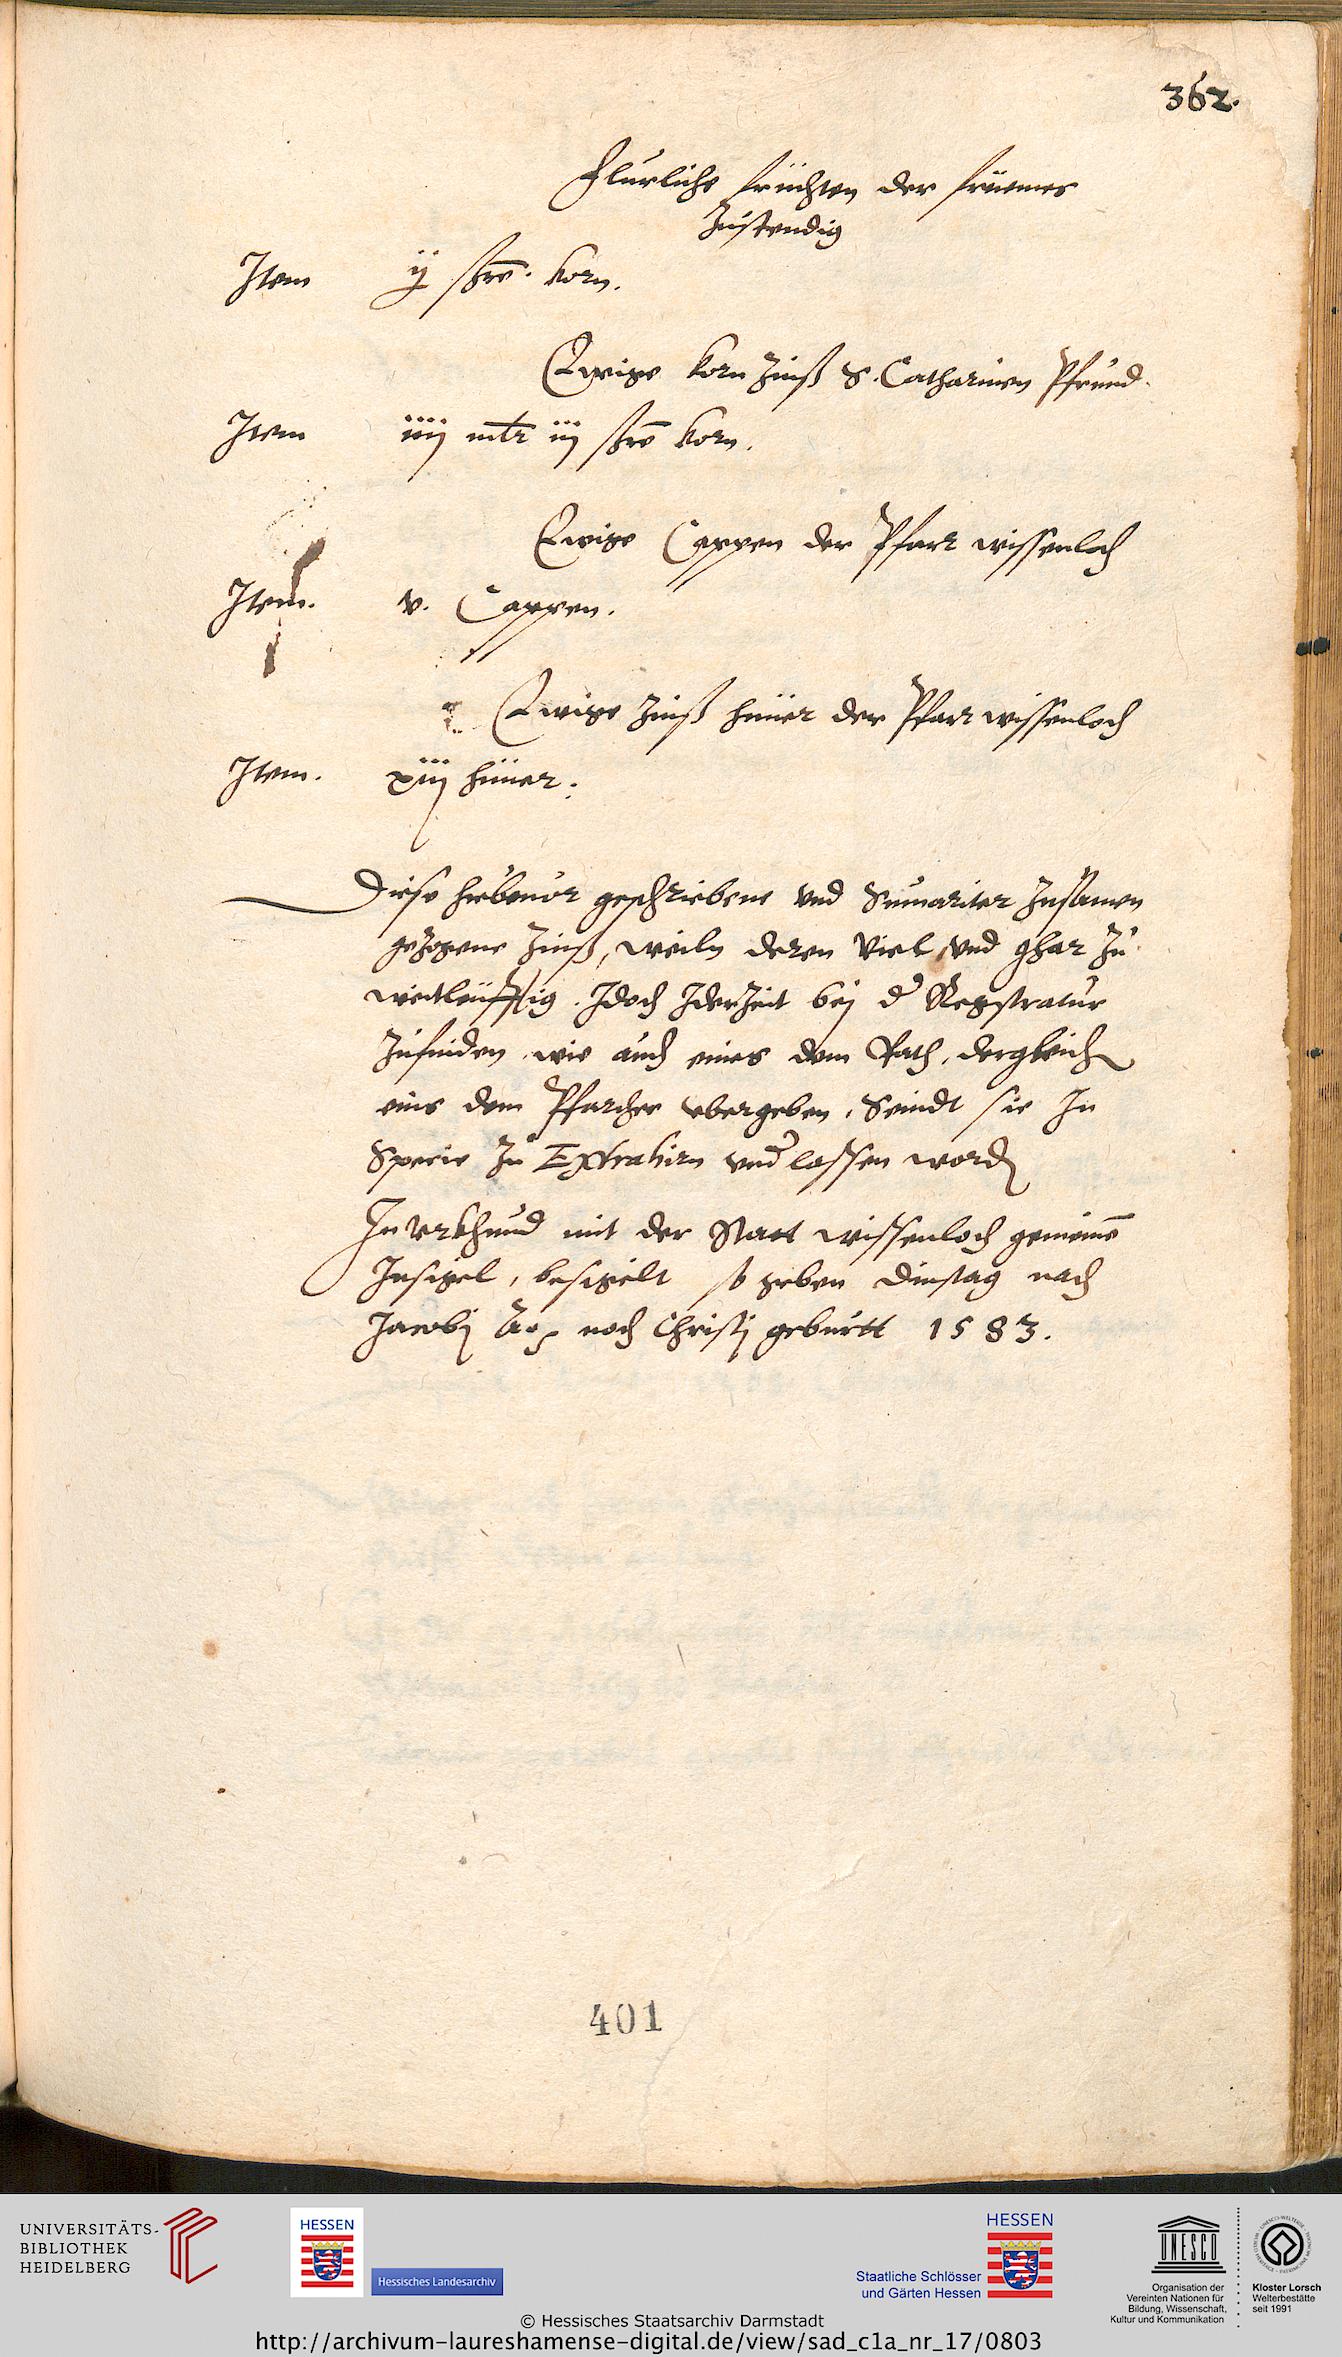 362.
Flurliche früchten der frümes
Zustendig
Item ij ßr̄e. korn.
Ewige korn Zinß S. Catharinen Pfründ.
Item iiij mtr iij ßr̄e korn.
Ewige Cappen der Pfarr wissenloch
Item. v. Cappen.
Ewige Zinß hüner der Pfarr wissenloch
Item. xiij hüner.
Diese hiebeuor geschriebene vnd Sumariter Zusamen
gezogene Zinß, weiln deren Viel vnd ghar Zu
weitleüffig. Idoch Jderzeit bej d' Registratur
Zufinden wie auch eines dem Rath, dergleich
eins dem Pfarher vbergeben, Seindt sie In
Specie Zu Extrahirn vnd'lassen word
In Vrkhund mit der Statt wissenloch gemeinē
Insigel, besigelt so geben dinstag nach
Jacobj Ao nach Christj geburtt 1583.
401
UNIVERSITÄTS-
BIBLIOTHEK
HEIDELBERG
HESSEN
Hessisches Landesarchiv
HESSEN
Staatliche Schlösser
und Gärten Hessen
UNESCO
Organisation der
Vereinten Nationen für
Bildung, Wissenschaft,
Kultur und Kommunikation
Kloster Lorsch
Welterbestätte
seit 1991
© Hessisches Staatsarchiv Darmstadt
http://archivum-laureshamense-digital.de/view/sad_c1a_nr_17/0803